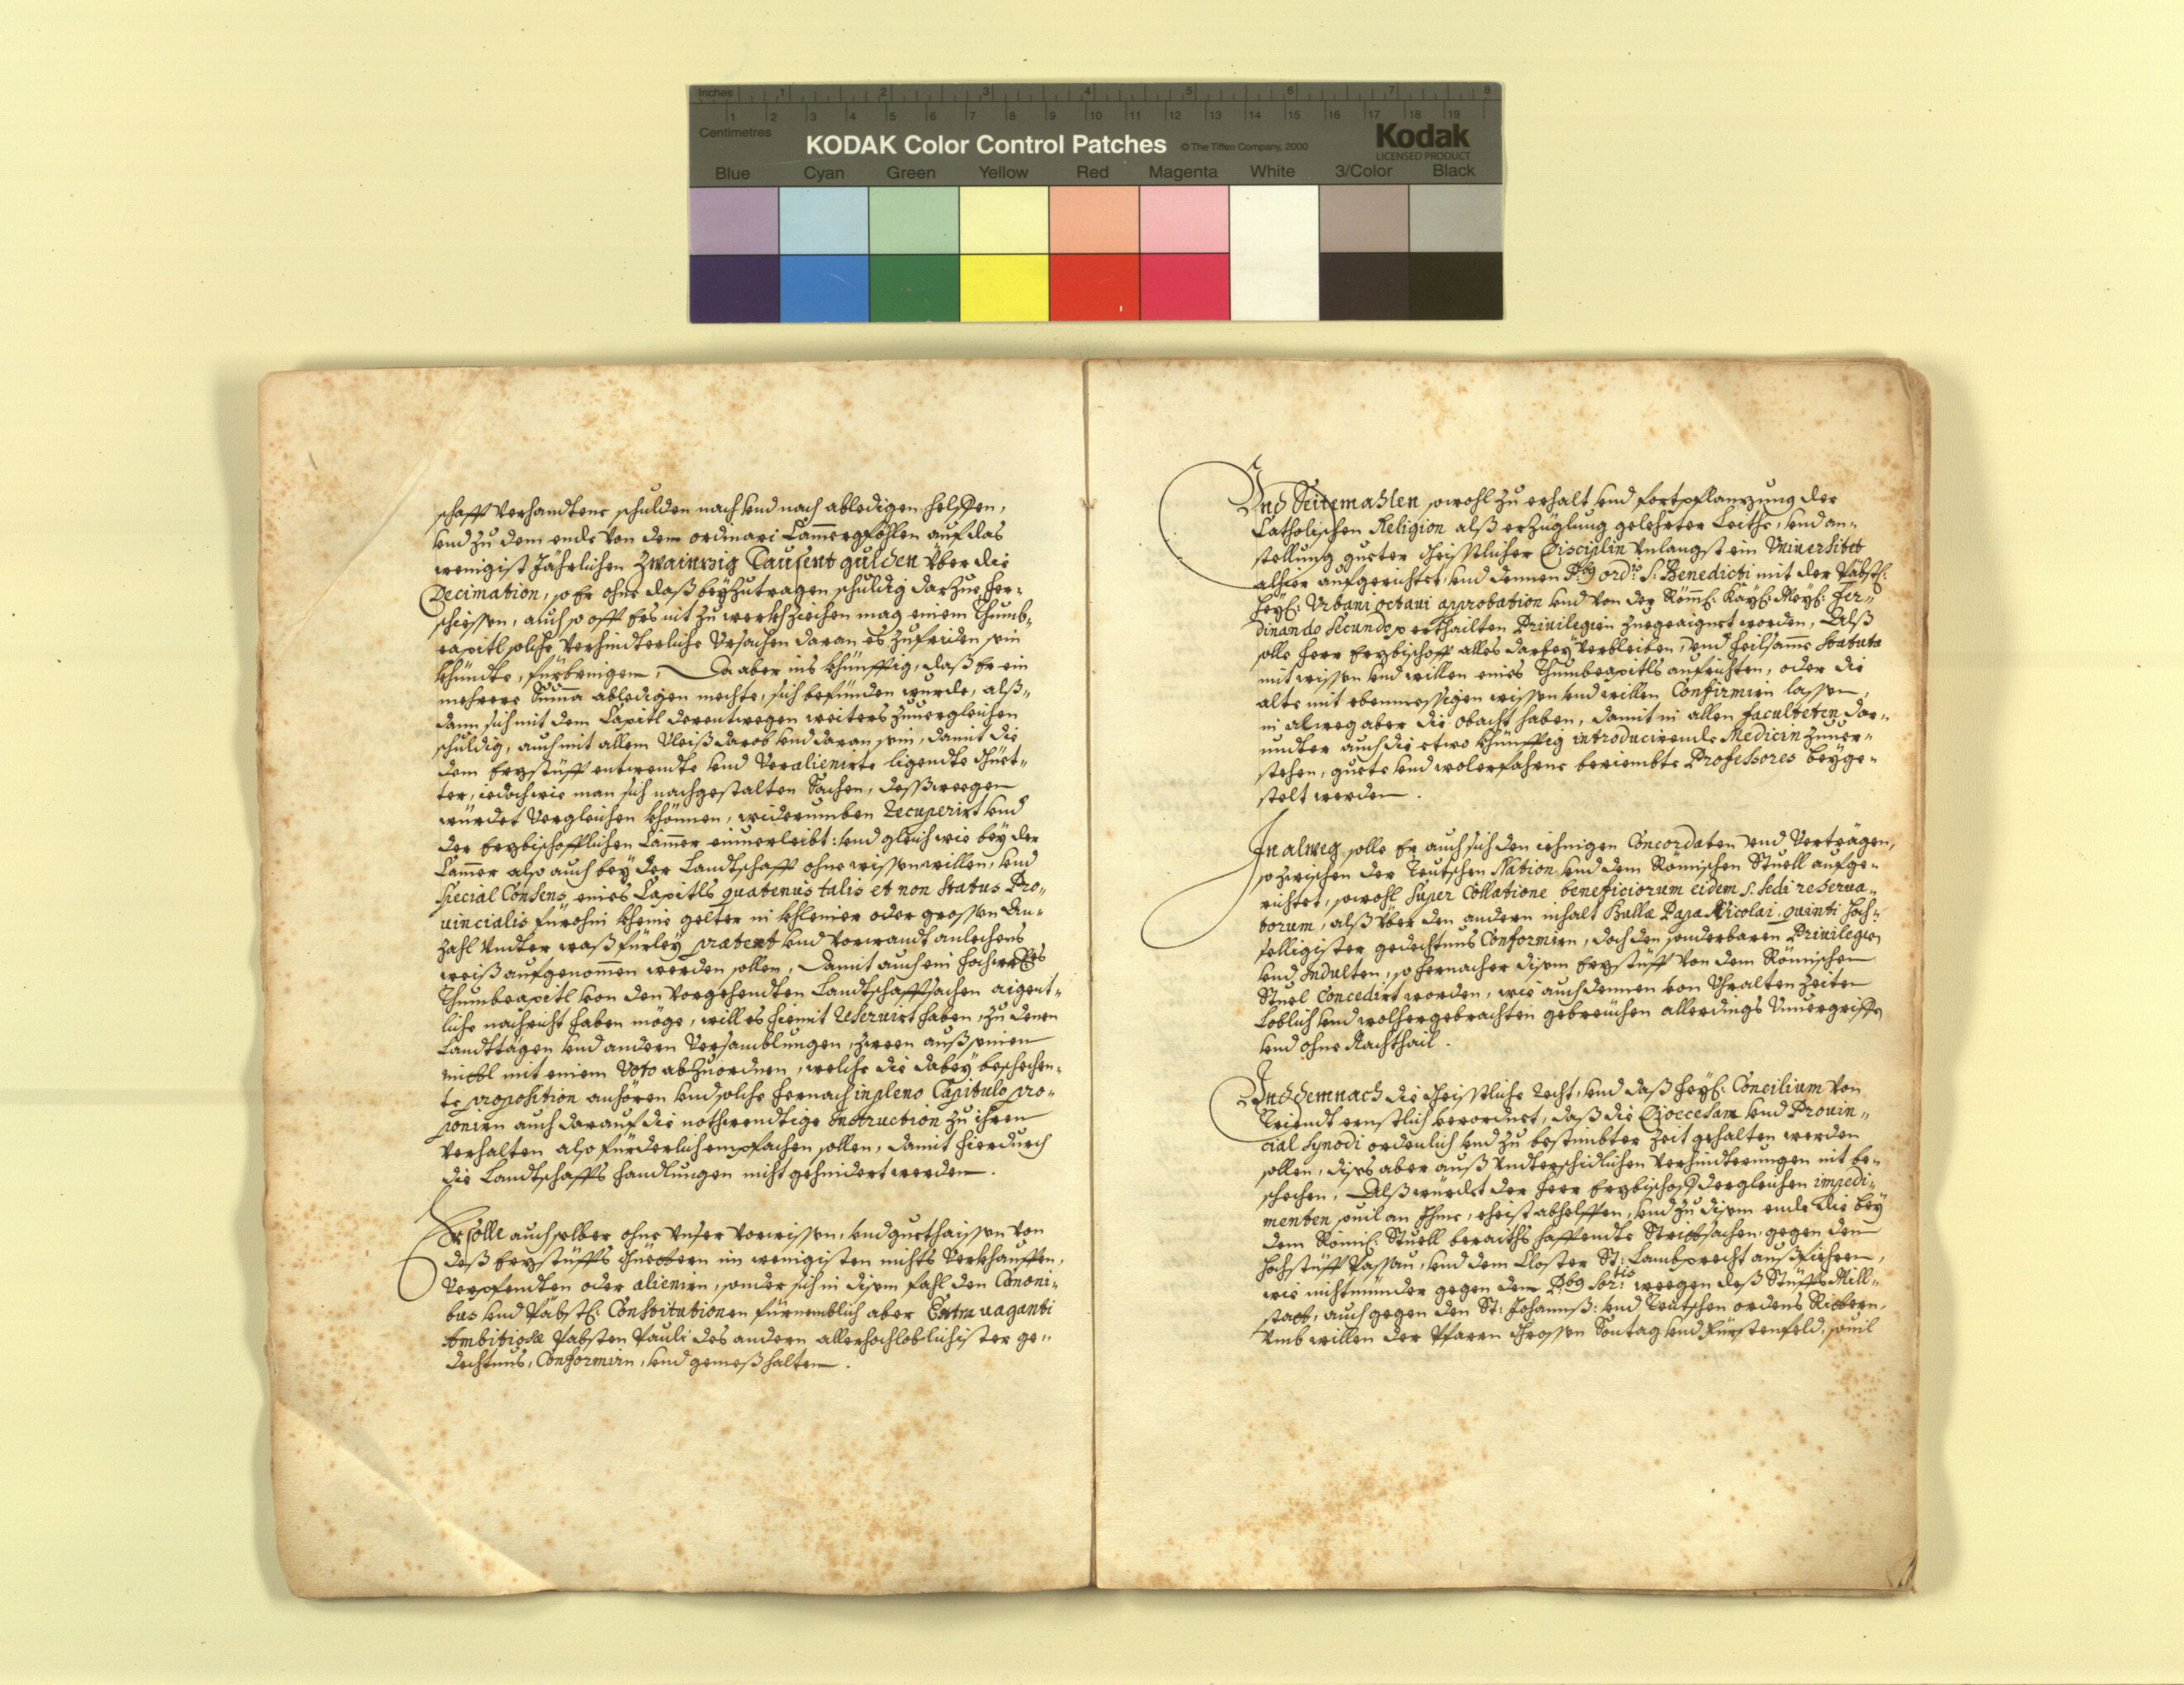 Inches 1 2 3 4 5 6 7 8
Centimetres 1 2 3 4 5 6 7 8 9 10 11 12 13 14 15 16 17 18 19
KODAK Color Control Patches © The Tiffen Company, 2000 Kodak
LICENSED PRODUCT
Blue Cyan Green Yellow Red Magenta White 3/Color Black
schafft verhandtene schulden nach vnd nach abledigen helffen,
vnd zu dem ende von dem ordinari Cammergföhlen auf das
wenigist Jährlichen Zwainzig Tausent gulden über die
Decimation, so Er ohne daß beyzutragen schuldig darzue her-
schiessen, auch so offt Ers nit zu werkh ziehen mag einem Thumb-
capitl solche verhinderliche Vrsachen daran es zufriden sein
khündte, fürbringen, Da aber ins khünfftig, daß Er ein
mehrere Summa abledigen mechte, sich befünden wurde, alß-
dann sich mit dem Capitl derentwegen weiters zuuergleichen
schuldig, auch mit allem Vleiß darob vnd daran sein, damit die
dem Erzstüfft entwendte vnd veralienirte ligendte Güet-
ter, iedoch wie man sich nachgestalten Sachen, deßwegen
würdet vergleichen khönnen, widerumben recuperirt vnd
der Erzbischofflichen Cammer einuerleibt: vnd gleich wie bey der
Cammer also auch bey der Landtschafft ohne wissen willen, vnd
special Consens eines Capitls quatenus talis et non status Pro-
uincialis fürohin kheine gelter in khleiner oder grossen An-
zahl vndter waß fürley prætext vnd vorwandt anlechens
weiß aufgenommen werden sollen, Damit auch ein Hochw:
Thumbcapitl von den vorgehendten Landtschafftsachen aigent-
liche nachricht haben möge, will es hiemit reseruirt haben, zu denen
Landttägen vnd andern Versamblungen, zween auß seinem
mittl mit einem Voto abzuordnen, welche die dabey beschehen-
te proposition anhören vnd solche hernach in pleno Capitulo pro-
poniren auch darauf die nothwendtige Instruction zu ihrem
verhalten also fürderlich empfachen sollen, damit hierdurch
die Landtschaffts handlungen nicht gehindert werden.
Er solle auch selber ohne Vnser vorwissen, vnd guethaissen von
deß Erzstüffts Güettern im wenigisten nichts verkhauffen,
verpfendten oder alieniren, sonder sich in disem fahl den Canoni-
bus vnd Päbstl: Constitutionen fürnemblich aber Extrauaganti
Ambitiosæ Pabsten Pauli des andern allerhochloblichister ge-
dechtnus, Conformirn, vnd gemeß halten.
Vnd Seitemahlen sowohl zu erhalt vnd fortpflantzung der
Catholischen Religion alß erzüglung gelehrter Leithe, vnd an-
stellung gueter Geistlicher Disciplin vnlangst ein Vniuersitet
alhier aufgerichtet, vnd dennen ord: S: Benedicti mit der Päbstl:
Heyl: Vrbani octaui approbation vnd von der Römi: Kayl: Meyl: Fer-
dinando secundo erthailten Priuilegien zuegeaignet worden, Alß
solle Herr Erzbischoff alles darbey verbleiben, vnd heilsamme statuta
mit wissen vnd willen eines Thumbcapitls aufrichten, oder die
alte mit ebenmessigen wissen vnd willen Confirmirn lassen,
in alweg aber die obacht haben, damit in allen Faculteten dar-
undter auch die etwo khünfftig introducirende Medicin zuuer-
stehen, guete vnd wolerfahrne beriembte Professores beyge-
stelt werden.
In alweg solle Er auch sich den iehnigen Concordaten vnd Verträgen,
so zwischen der Teutschen Nation vnd dem Römischen Stuell aufge-
richtet, sowohl super Collatione beneficiorum eidem S: Sedi reserua-
torum, alß über den andern inhalt Bullæ Papæ Nicolai quinti hoch-
selligister gedechtnus Conformirn, doch den sonderbaren Priuilegien
vnd Indulten, so hernacher disem Erzstüfft von dem Römischen
Stuel Concedirt worden, wie auch dennen von Vhralten Zeiten
Loblich vnd wolhergebrachten gebreüchen allerdings vnuergriffen
vnd ohne Nachthail.
Vnd demnach die Geistliche recht, vnd daß Heyl: Concilium von
Triendt ernstlich verordnet, daß die Dioecesan vnd Prouin-
cial Synodi ordenlich vnd zu bestimbter Zeit gehalten werden
sollen, dises aber auß vndterschidlichen verhindterungen nit be-
schechen, Alß würdet der Herr Erzbischoff dergleichen impedi-
menten souil an Ihme, eheist abhelffen, vnd zu disem ende die bey
dem Römi: Stuell beraiths hafftendte Strittsachen, gegen dem
Hochstüfft Passau, vnd dem Closter St: Lambprecht außfiehren,
wie nichtminder gegen dem Soc:tis weegen deß Stüffts Mill-
statt, auch gegen den St: Johannß: vnd Teutschen ordens Rittern,
Vmb willen der Pfarrn Grossen Sontag vnd Fürstenfeld, souil